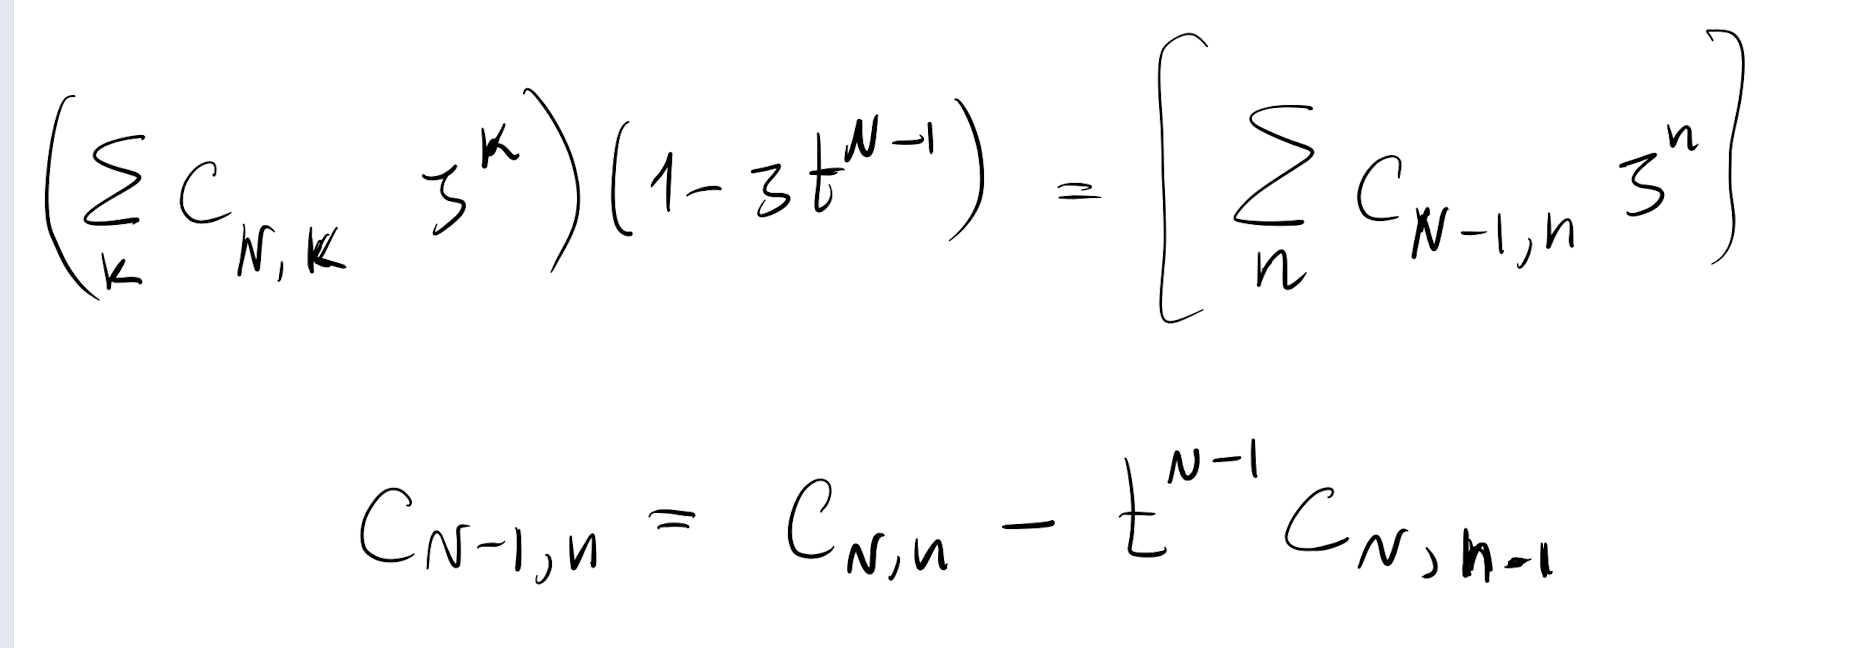 (∑_k C_{N,k} z^k)(1 - z t^{N-1}) = [∑_n C_{N-1,n} z^n]
C_{N-1,n} = C_{N,n} - t^{N-1} C_{N,n-1}